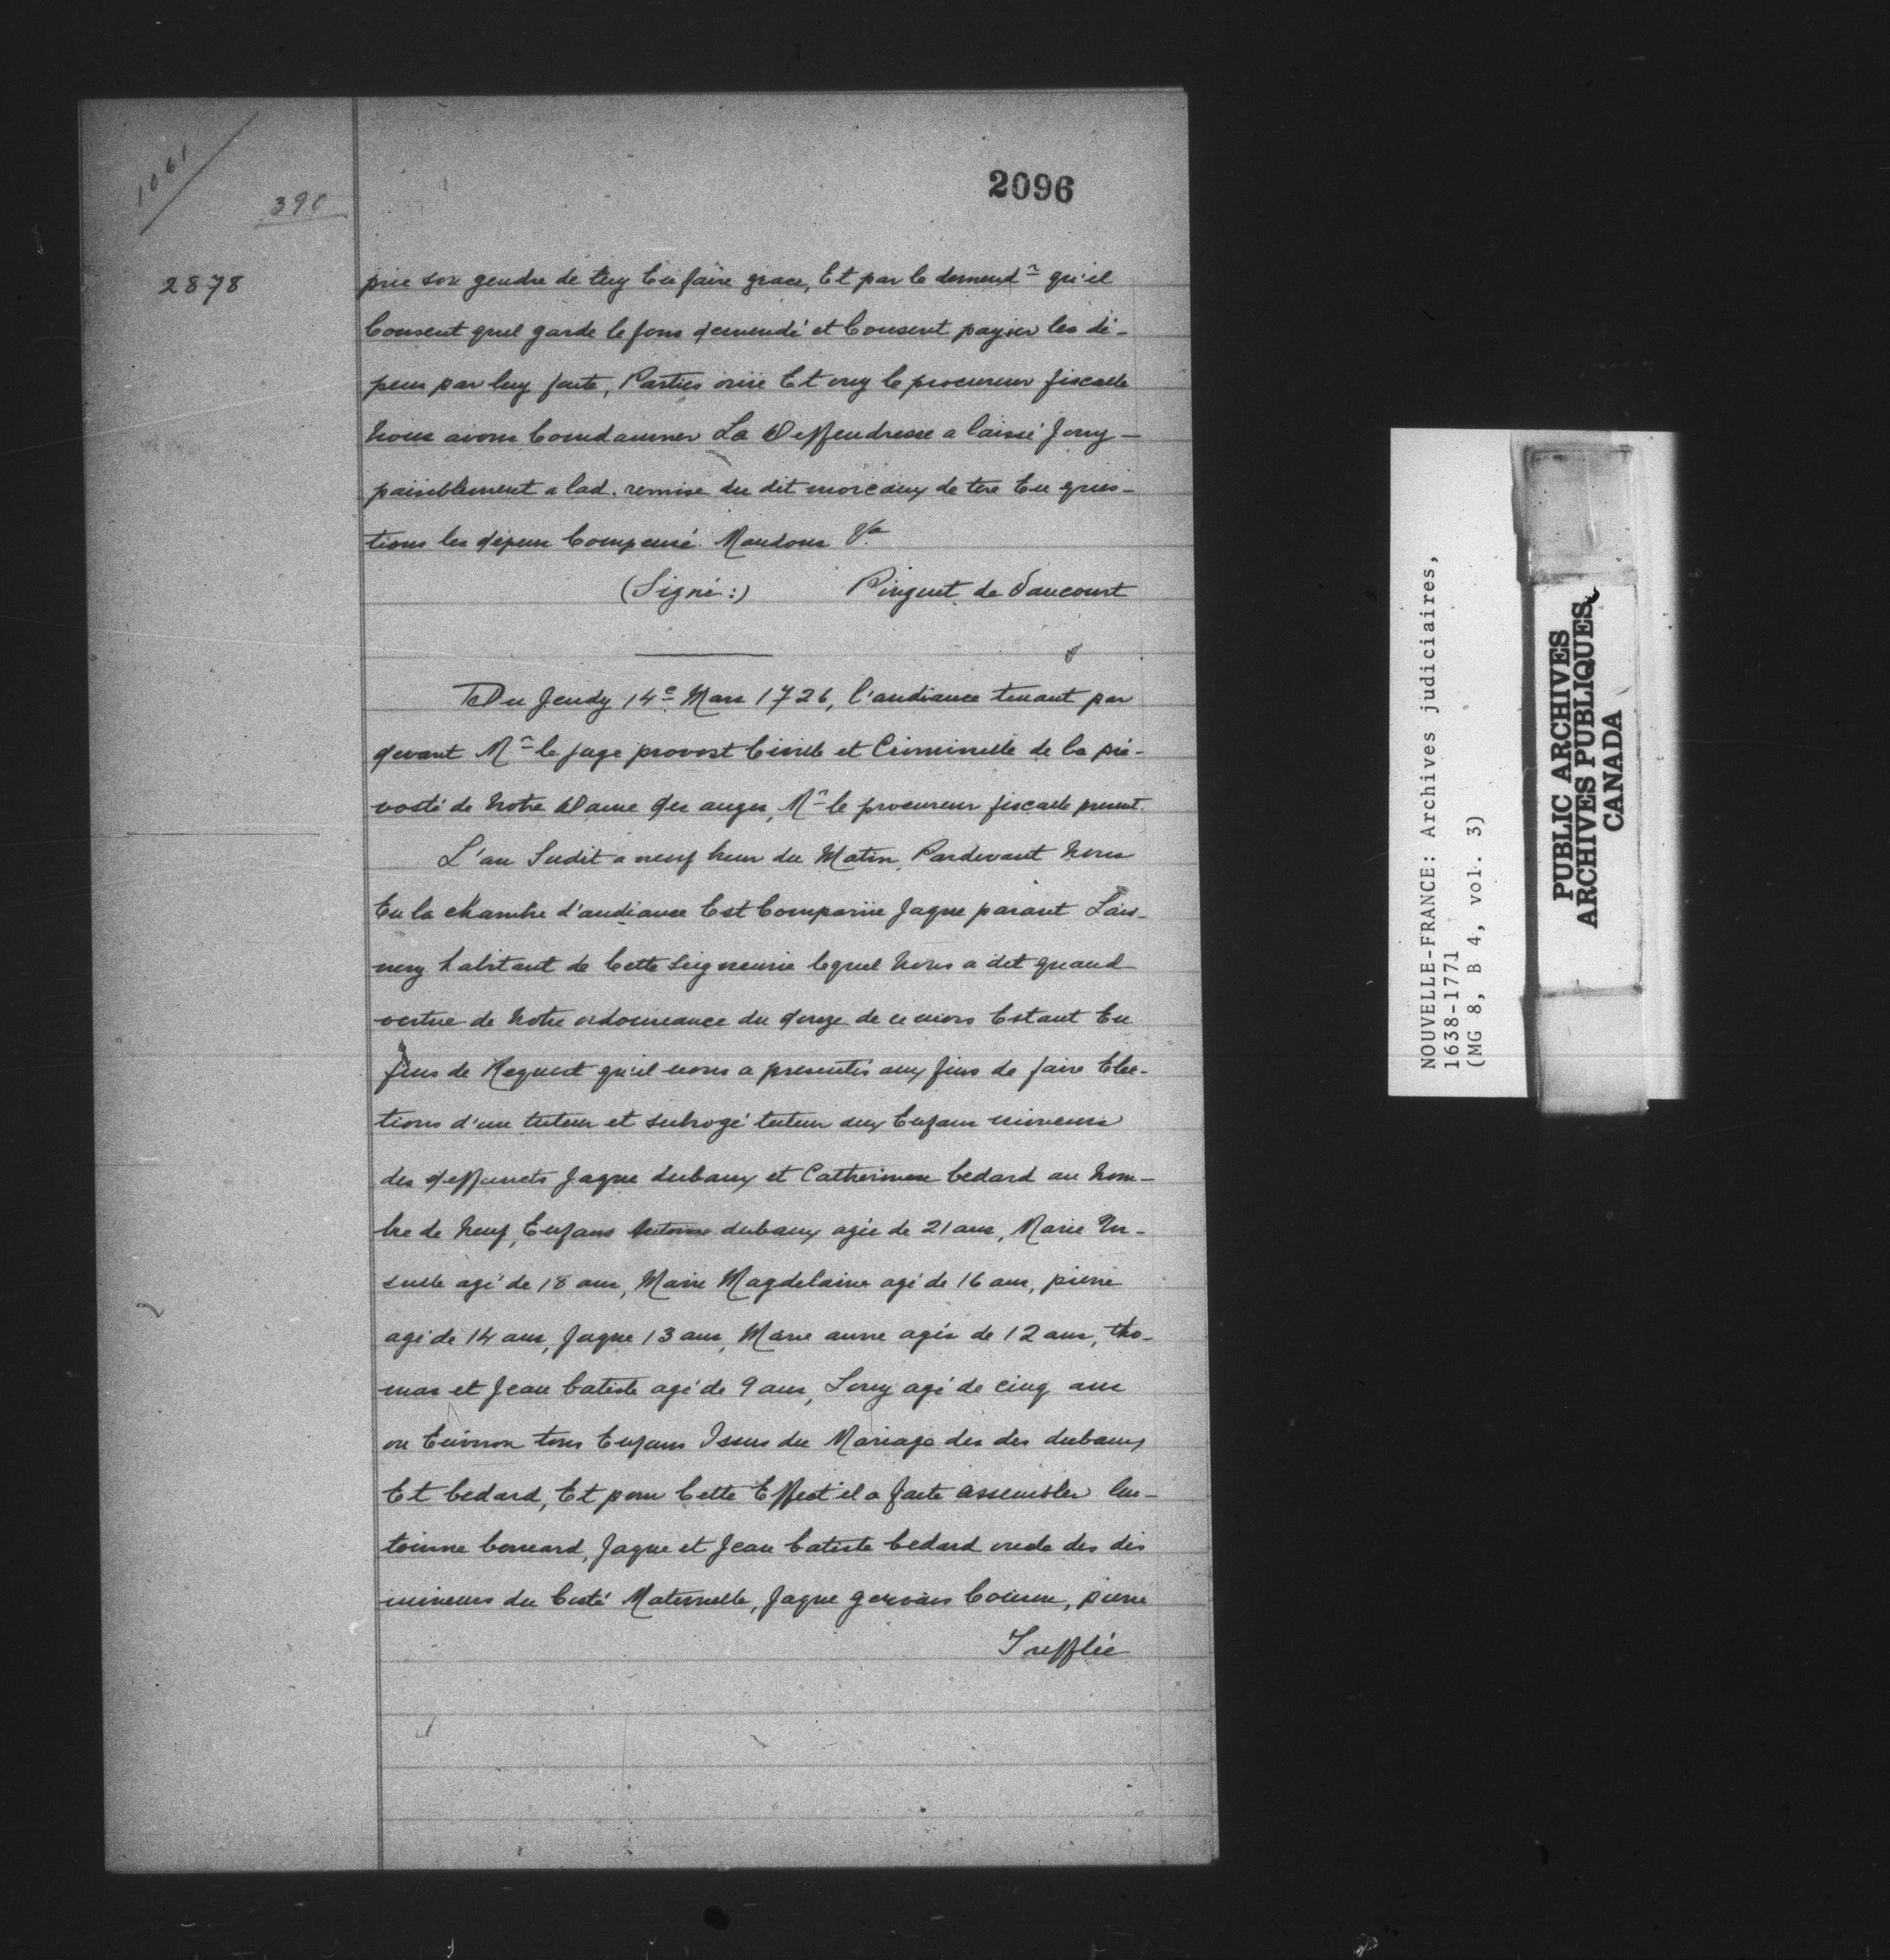 1061
390
2096
2878
prie son gendre de luy En faire grace, Et par le demend^r qu'il
Consent quel garde le fons demendé et Consent payier les dé-
pens par luy faite, Parties ouïe Et ouy le procureur fiscalle
Nous avons Comdamner La Deffendresse a laissé Jouy-
paisiblement a lad. remise du dit morceaux de tere En ques-
tions les depens Compensé. Mandons Va
(Signé:) Pingent de Vaucourt
Du Jeudy 14e Mars 1726, l'audiance tenant par
devant Mr le juge provost Civille et Criminelle de la pré-
vosté de Notre Dame des anges, Mr le procureur fiscalle present.
L'an Sudit a neuf heur du Matin, Pardevant Nous
En la chambre d'audiance Est Comparüe Jaque parant Lais-
ney habitant de Cette Seigneurie lequel Nous a dit quand
vertue de Notre ordonnance du douze de ce mois Estant En
fins de Request qu'il nous a presentés aux fins de faire Elec-
tions d'un tuteur et subrogé tuteur aux Enfans mineurs
des deffuncts Jaque dubaux et Catherinne bedard au Nom-
bre de Neuf, Enfans Antoine dubaux agée de 21 ans, Marie Ur-
sulle agé de 18 ans, Marie Magdelaine agé de 16 ans, pierre
agé de 14 ans, Jaque 13 ans, Marie anne agée de 12 ans, tho-
mas et Jean batiste agé de 9 ans, Louy agé de cinq ans
ou Environ tous Enfans Issus du Mariage des des dubaux
Et bedard, Et pour Cette Effect il a faite assembler An-
toinne bernard, Jaque et Jean batiste bedard oncle des dis
mineurs du Costé Maternelle, Jaque gervais Cousin, pierre
Trefflée
NOUVELLE-FRANCE: Archives judiciaires,
1638-1771
(MG 8, B 4, vol. 3)
PUBLIC ARCHIVES
ARCHIVES PUBLIQUES
CANADA